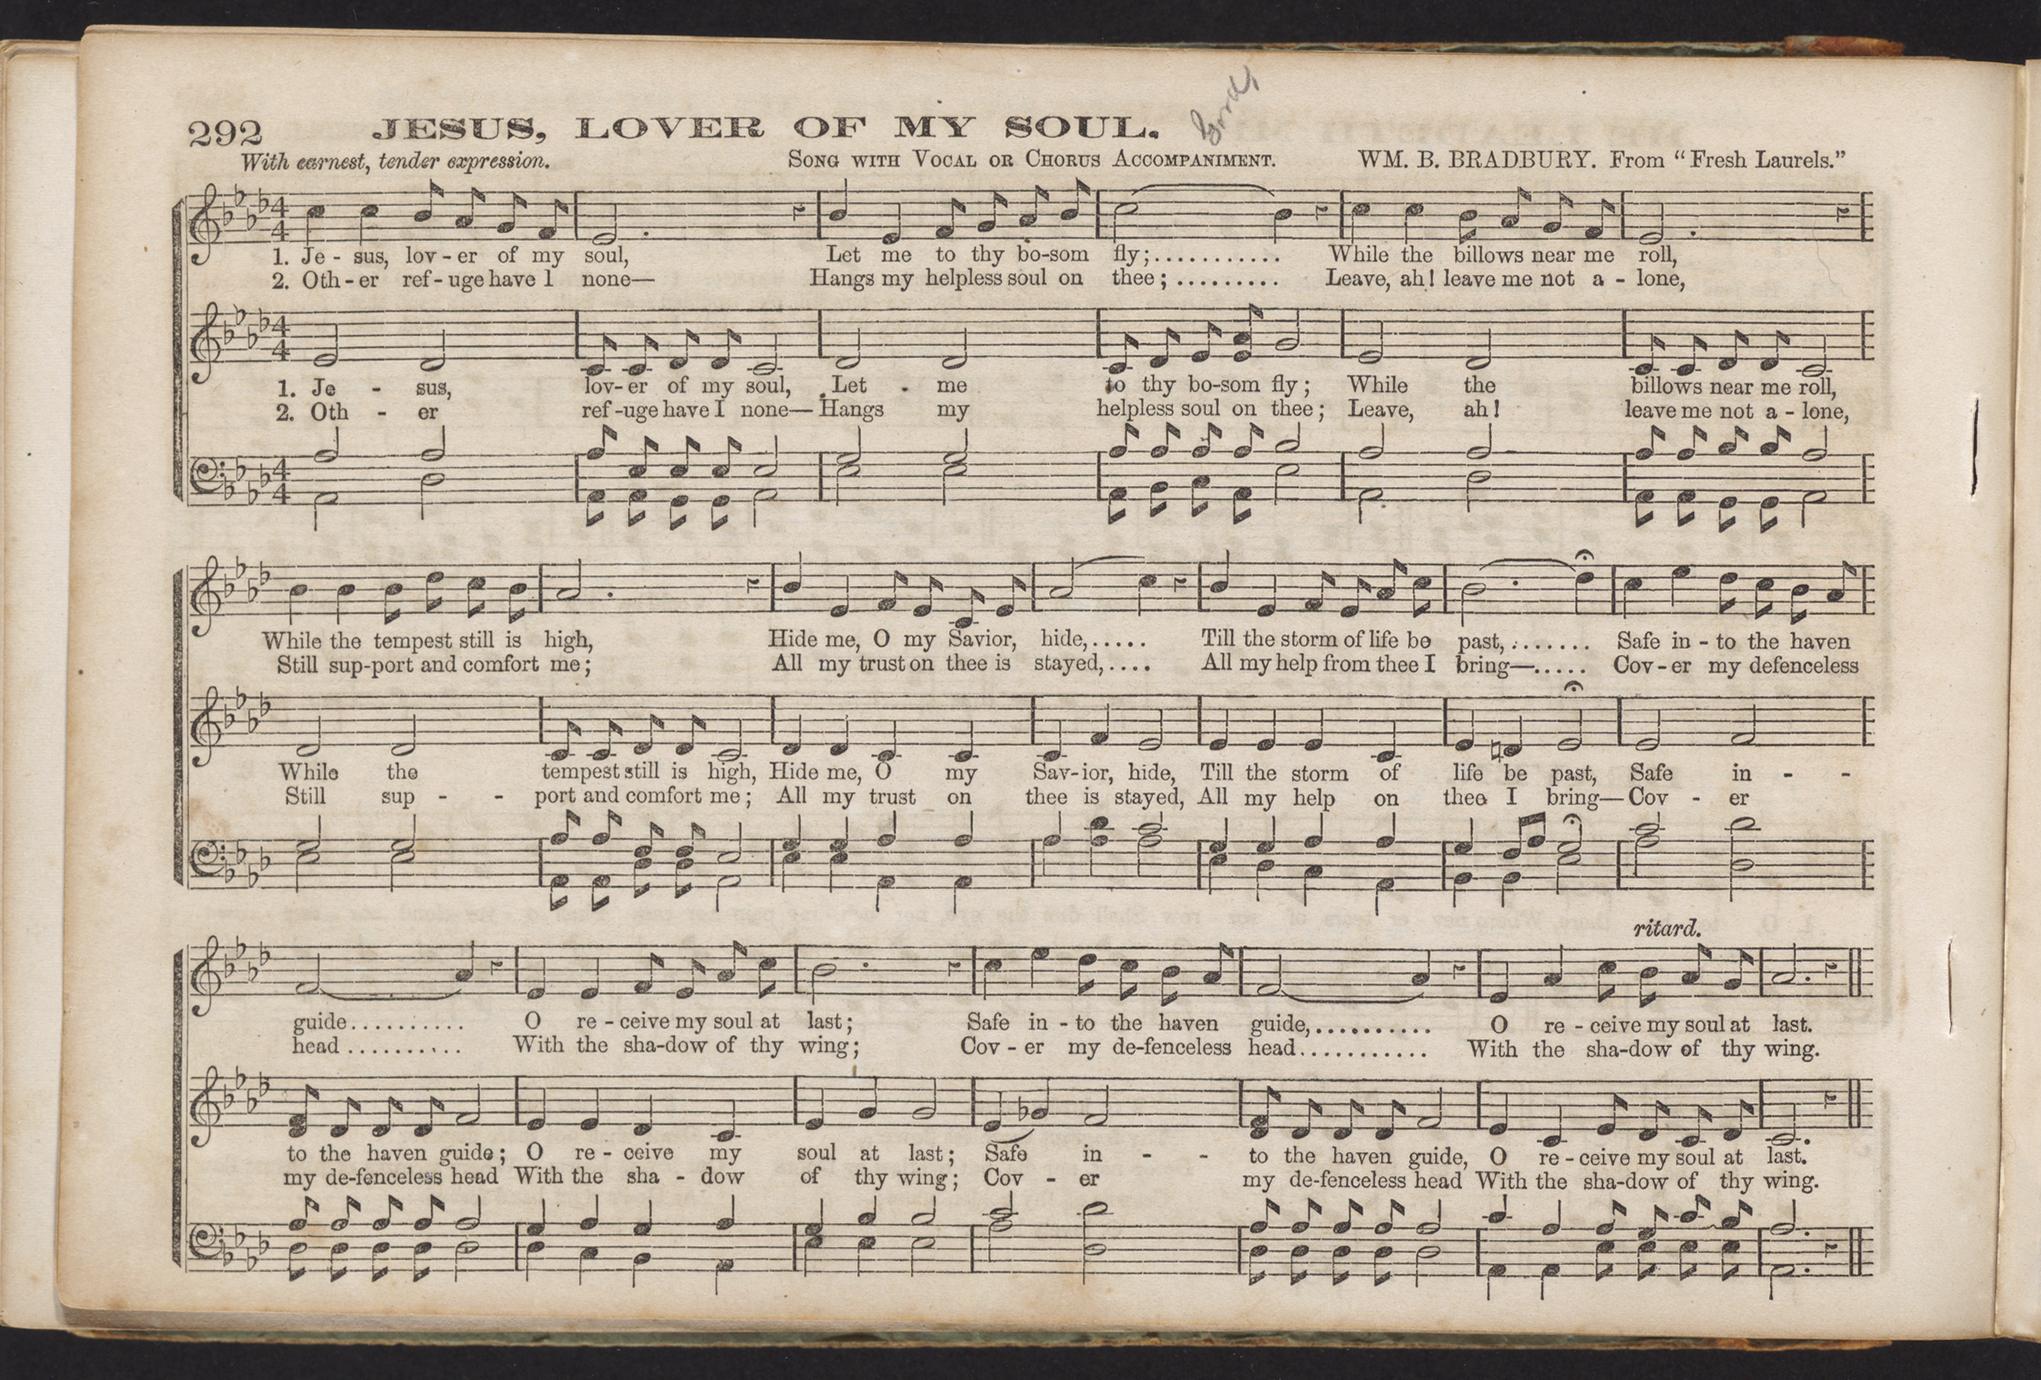 292 JESUS, LOVER OF MY SOUL.
With earnest, tender expression. SONG WITH VOCAL OR CHORUS ACCOMPANIMENT. WM. B. BRADBURY. From "Fresh Laurels."
1. Je - sus, lov - er of my soul, Let me to thy bo-som fly;........... While the billows near me roll,
2. Oth - er ref - uge have I none— Hangs my helpless soul on thee;......... Leave, ah! leave me not a - lone,
1. Je - sus, lov- er of my soul, Let - me to thy bo-som fly; While the billows near me roll,
2. Oth - er ref -uge have I none— Hangs my helpless soul on thee; Leave, ah! leave me not a - lone,
While the tempest still is high, Hide me, O my Savior, hide,..... Till the storm of life be past,........ Safe in - to the haven
Still sup-port and comfort me; All my trust on thee is stayed,.... All my help from thee I bring—..... Cov - er my defenceless
While the tempest still is high, Hide me, O my Sav-ior, hide, Till the storm of life be past, Safe in - -
Still sup - - port and comfort me; All my trust on thee is stayed, All my help on thee I bring— Cov - er
ritard.
guide.......... O re - ceive my soul at last; Safe in - to the haven guide,.......... O re - ceive my soul at last.
head.......... With the sha-dow of thy wing; Cov - er my de-fenceless head........... With the sha-dow of thy wing.
to the haven guide; O re - ceive my soul at last; Safe in - - to the haven guide, O re - ceive my soul at last.
my de-fenceless head With the sha - dow of thy wing; Cov - er my de-fenceless head With the sha-dow of thy wing.